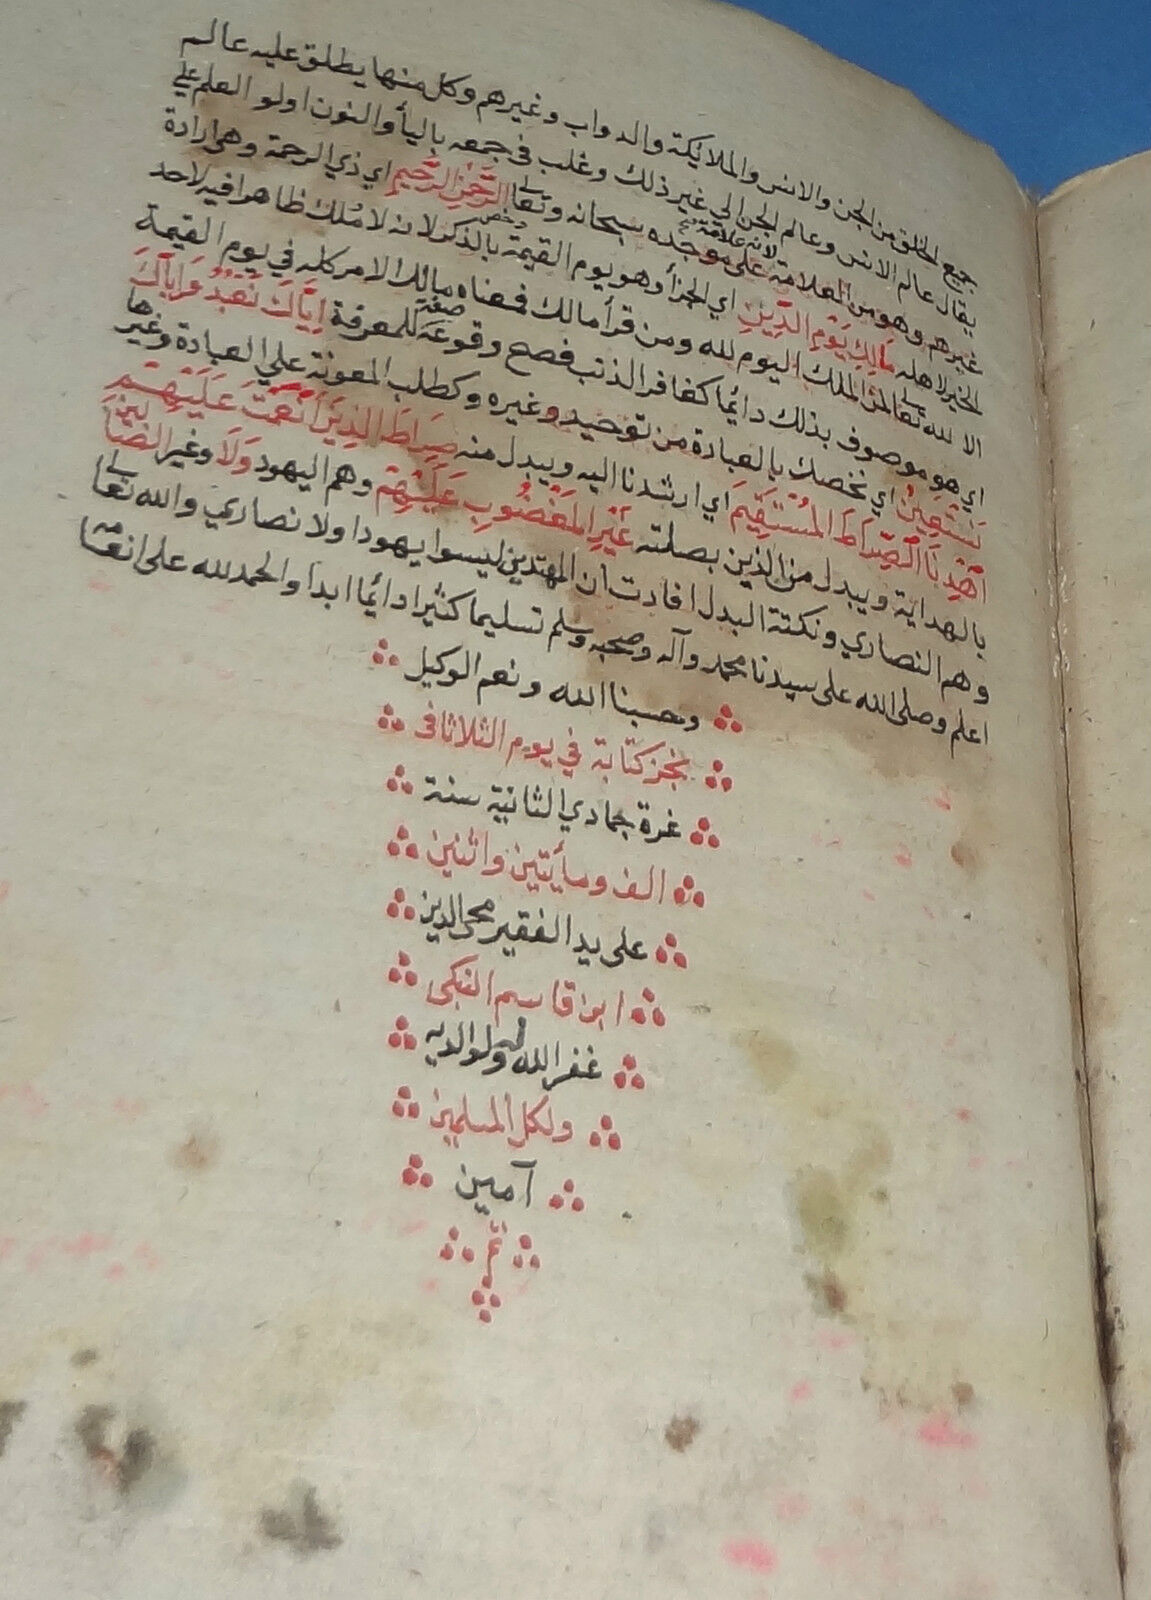 جميع الخلق من الجن والانس والملايكة والدواب وغيرهم وكل منها يطلق عليه عالم
يقال عالم الانس وعالم الجن الي غير ذلك وغلب في جمعه باليأ والنون اولو العلم علي
غيرهم وهو من العلامة لانه علامة على موجده سبحانه وتعالى الرَّحْمَنِ الرَّحِيمِ اي ذي الرحمة وهي ارادة
الخير لاهله مَالِكِ يَوْمِ الدِّينِ اي الجزأ وهو يوم القيمة وخص بالذكر لانه لا مُلك ظاهرا فيه لاحد
الا لله تعالى لمن الملك اليوم لله ومن قرأ مالك فمعناه مالك الامر كله في يوم القيمة
اي هو موصوف بذلك دائما كغافر الذنب فصح وقوعه صفة للمعرفة اِيَّاكَ نَعْبُدُ وَاِيَّاكَ
نَسْتَعِينُ اي نخصك بالعبادة من توحيد وغيره وكطلب المعونة علي العبادة وغيرها
اهْدِنَا الصِّرَاطَ المُسْتَقِيمَ اي ارشدنا اليه ويبدل منه صِرَاطَ الذِينَ أَنْعَمْتَ عَلَيْهِمْ
بالهداية ويبدل من الذين بصلته غَيْرِ المَغْضُوبِ عَلَيْهِمْ وهم اليهود وَلَا وغير الضَّالِّينَ
وهم النصاري ونكتة البدل افادت ان المهتدين ليسوا يهودا ولا نصاري والله تعالى
اعلم وصلى الله على سيدنا محمد وآله وصحبه وسلم تسليما كثيرا دائما ابدا والحمد لله على انعامه
وحسبنا الله ونعم الوكيل
نجز كتابة في يوم الثلاثا في
غرة جمادي الثانية سنة
الف ومأيتين واثنين
على يد الفقير محي الدين
ابن قاسم النبكي
غفر الله له ولوالديه
ولكل المسلمين
آمين
تم